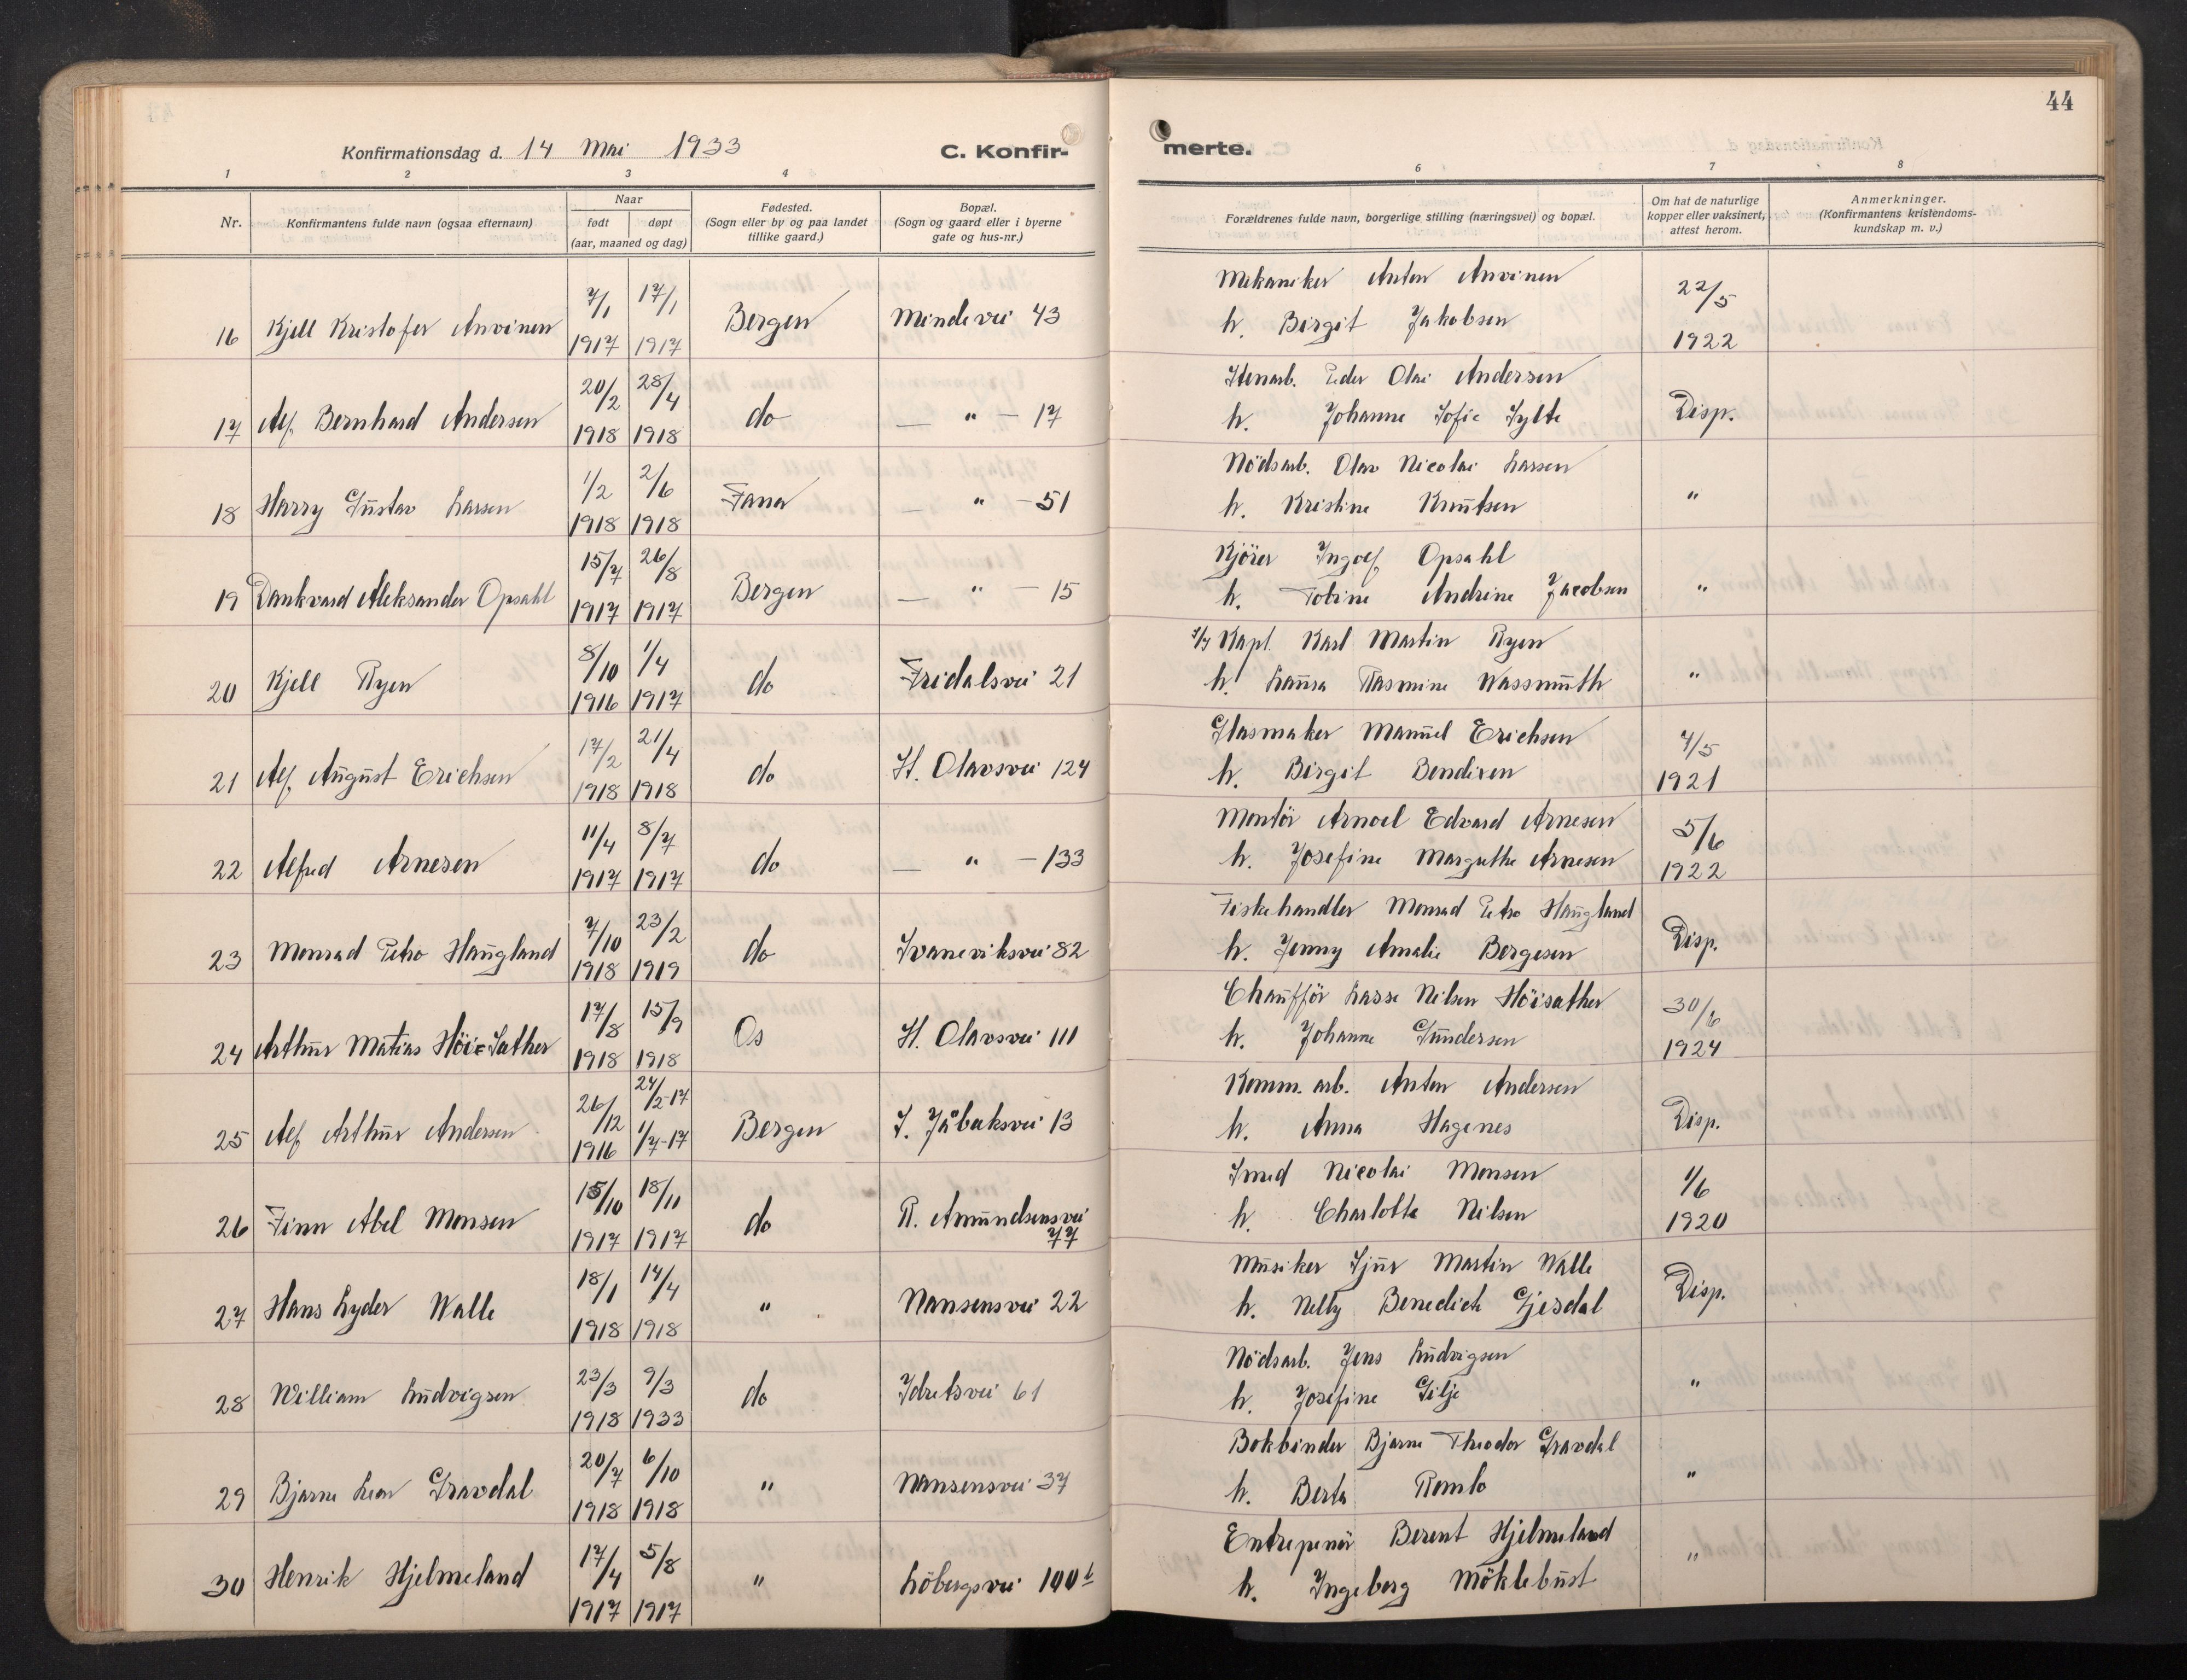 44
Konfirmationsdag d. 14 Mai 1933
C. Konfir-
merte.
1 2 3 4
6 7 8
Nr.
Konfirmantens fulde navn (ogsaa efternavn)
Naar
født døpt
(aar, maaned og dag)
Fødested.
(Sogn eller by og paa landet
tillike gaard.)
Bopæl.
(Sogn og gaard eller i byerne
gate og hus-nr.)
Forældrenes fulde navn, borgerlige stilling (næringsvei) og bopæl.
Om hat de naturlige
kopper eller vaksinert,
attest herom.
Anmerkninger.
(Konfirmantens kristendoms-
kundskap m. v.)
16 Kjell Kristofer Anvinen 7/1 1917 17/1 1917 Bergen Mindevei 43
Mekaniker Anton Anvinen 22/5
h. Birgit Jakobsen 1922
17 Alf Bernhard Andersen 20/2 1918 28/4 1918 do — " — 17
Stenarb. Peder Olai Andersen
h. Johanne Sofie Sylte Disp.
18 Harry Gustav Larsen 1/2 1918 2/6 1918 Fana — " — 51
Nödsarb. Olav Nicolai Larsen
h. Kristine Knutsen "
19 Dankvard Aleksander Opsahl 15/7 1917 26/8 1917 Bergen — " — 15
Kjörer Ingolf Opsahl
h. Tobine Andrine Jacobsen "
20 Kjell Ryen 8/10 1916 1/4 1917 do Fridalsvei 21
Kapt. Karl Martin Ryen
h. Laura Rasmine Wassmuth "
21 Alf August Erichsen 17/2 1918 21/4 1918 do St. Olavsvei 124
Glasmaker Manuel Erichsen 4/5
h. Birgit Bendixen 1921
22 Alfred Arnesen 11/4 1917 8/7 1917 do — " — 133
Montör Arnold Edvard Arnesen 5/6
h. Josefine Margrethe Arnesen 1922
23 Monrad Petro Haugland 7/10 1918 23/2 1919 do Ivaneviksvei 82
Fiskehandler Monrad Petro Haugland
h. Jenny Amalie Bergesen Disp.
24 Arthur Matias Höie-Sæther 17/8 1918 15/9 1918 Os St. Olavsvei 111
Chaufför Lasse Nilsen Höisæther 30/6
h. Johanne Gundersen 1924
25 Alf Arthur Andersen 26/12 1916 24/2-17 1/7-17 Bergen S. Jåbeksvei 13
Komm. arb. Anton Andersen
h. Anna Hagenes Disp.
26 Finn Abel Monsen 15/10 1917 18/11 1917 do R. Amundsensvei 77
Smed Nicolai Monsen 1/6
h. Charlotte Nilsen 1920
27 Hans Lyder Walle 18/1 1918 14/4 1918 " Nansensvei 22
Musiker Sjur Martin Walle Disp.
h. Nelly Benedicte Gjesdal
28 William Ludvigsen 23/3 1918 9/3 1933 do Idretsvei 61
Nödsarb. Jens Ludvigsen
h. Josefine Gilje "
29 Bjarne Leon Gravdal 20/7 1918 6/10 1918 " Nansensvei 37
Bokbinder Bjarne Theodor Gravdal
h. Berta Romlo "
30 Henrik Hjelmeland 17/4 1917 5/8 1917 " Löbergsvei 100 b
Entrepenör Berent Hjelmeland
h. Ingeborg Möklebust "